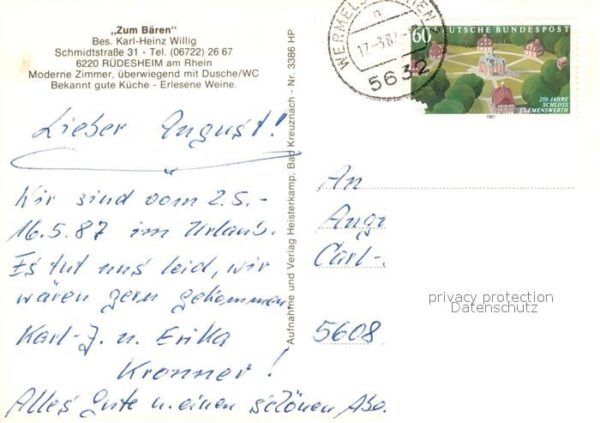 „Zum Bären"
Bes. Karl-Heinz Willig
Schmidtstraße 31 - Tel. (06722) 26 67
6220 RÜDESHEIM am Rhein
Moderne Zimmer, überwiegend mit Dusche/WC
Bekannt gute Küche - Erlesene Weine.
Lieber August!
Wir sind vom 2.5.-
16.5.87 im Urlaub.
Es tut uns leid, wir
wären gern gekommen
Karl-J. u. Erika
Kronner!
Alles gute u. einen schönen Abe.
Aufnahme und Verlag Heisterkamp, Bad Kreuznach - Nr. 3386 HP
5632
60
DEUTSCHE BUNDESPOST
250 JAHRE
SCHLOSS
CLEMENSWERTH
1987
An
Augu
Carl-
5608
privacy protection
Datenschutz